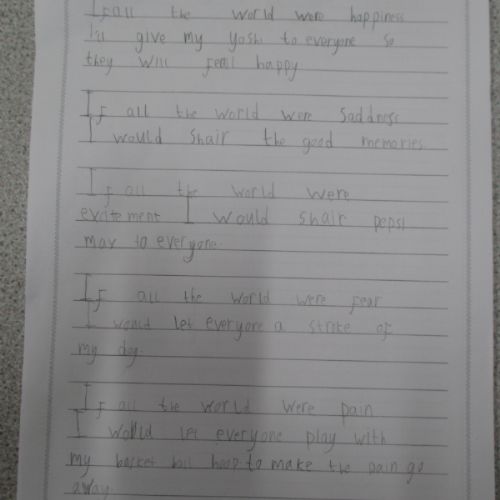 If all the world were happiness
I'll give my Yoshi to everyone so
they will feal happy
If all the world were saddness
I would shair the good memories.
If all the world were
excitement I would shair pepsi
max to everyone.
If all the world were fear
I would let everyone a stroke of
my dog.
If all the world were pain
I would let everyone play with
my basket ball hoop to make the pain go
away